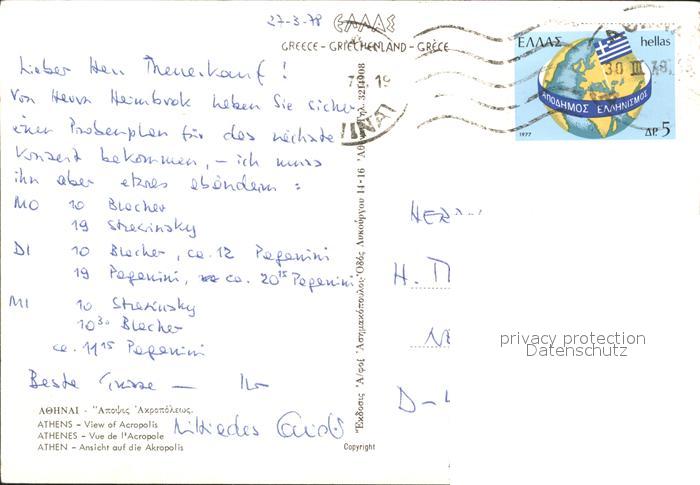 27-3-78
ΕΛΛΑΣ
GREECE - GRIECHENLAND - GRÈCE
ΕΛΛΑΣ hellas
30 III 78
ΑΠΟΔΗΜΟΣ ΕΛΛΗΝΙΣΜΟΣ
1977 ΔΡ 5
Lieber Herr !
von Herrn Heimbrok haben Sie sicher
einen Probenplan für das nächste
Konzert bekommen, – ich muss
ihn aber etwas abändern :
MO 10 Blacher
19 Strawinsky
DI 10 Blacher, ca. 12 Paganini
19 Paganini, ca. 20 15 Paganini
MI 10 Strawinsky
10 30 Blacher
ca. 11 15 Paganini
Beste Grüsse — Ihr
Miltiades Caridis
ΑΘΗΝΑΙ - Ἄποψις Ἀκροπόλεως.
ATHENS – View of Acropolis
ATHENES – Vue de l'Acropole
ATHEN – Ansicht auf die Akropolis
Copyright
Ἔκδοσις Ἀ/φοί Ἀσημακόπουλος Ὁδὸς Λυκούργου 14-16 3214908
HERRN
H.
D-
privacy protection
Datenschutz